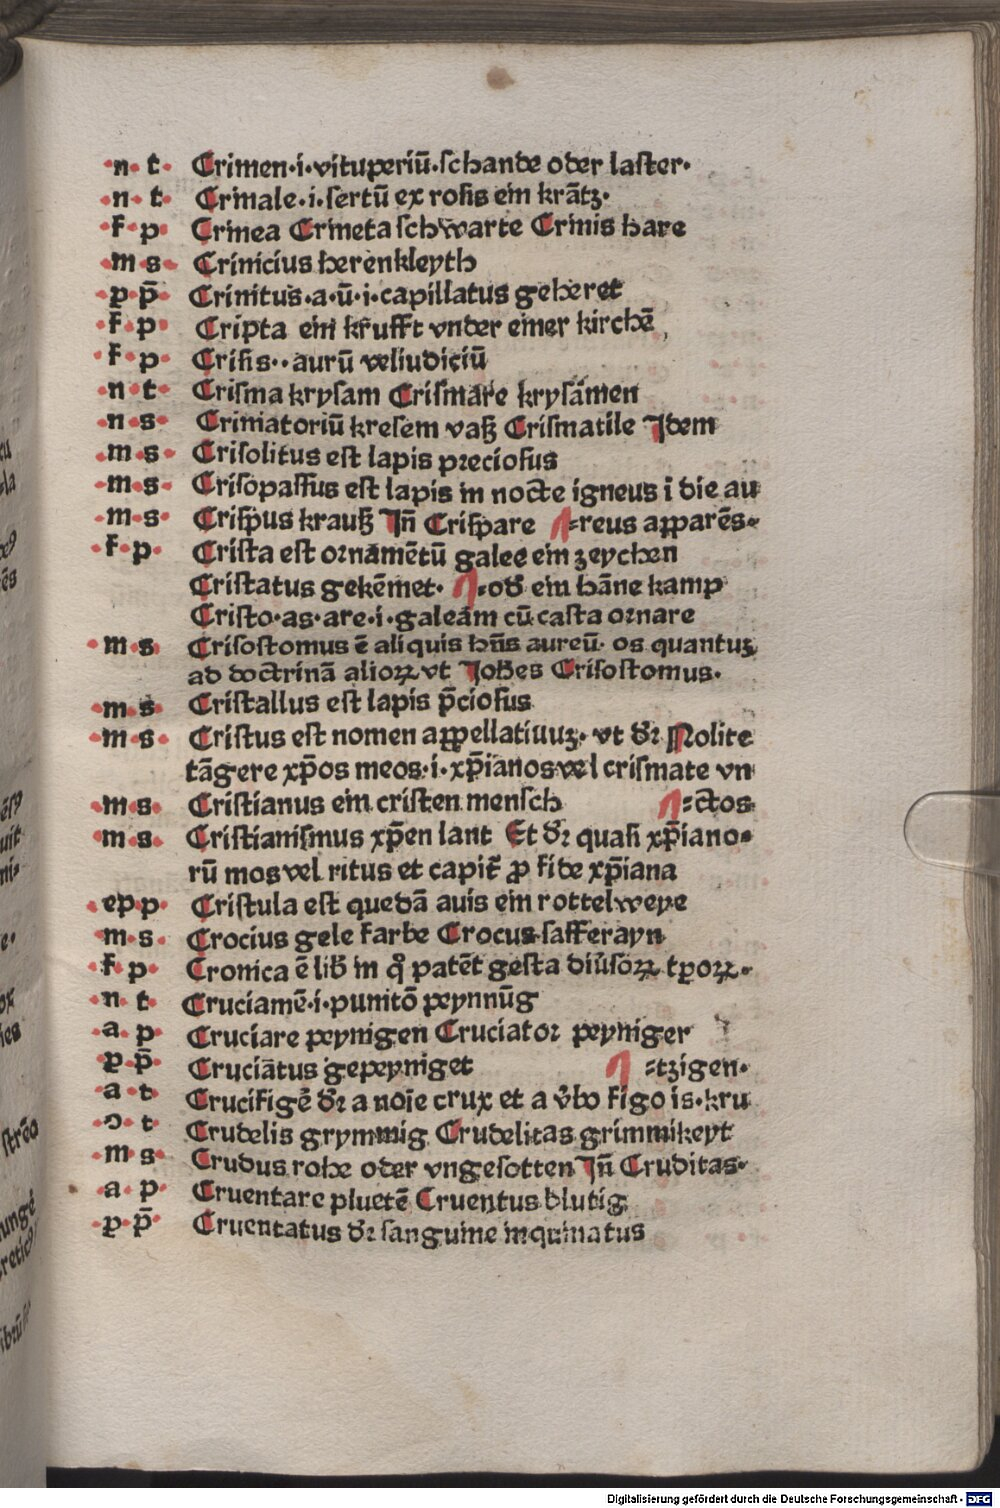 ·n· t· Crimen·i·vituperiū·ſchande oder laſter·
·n· t· Crinale·i·ſertū ex roſis ein krãtz·
·f· p· Crinea Crineta ſchwarte Crinis hare
·m· s· Crinicius herenkleyth
·p· p̄· Crinitus·a·ū·i·capillatus geheret
·f· p· Cripta ein krufft vnder einer kirchē
·f· p· Criſis··aurū vel iudiciū
·n· t· Criſma kryſam Criſmare kryſamen
·n· s· Crimatoriū kreſem vaſz Criſmatile Idem
·m· s· Criſolitus eſt lapis precioſus
·m· s· Criſopaſſus eſt lapis in nocte igneus ī die au
·m· s· Criſpus krauſz Iñ Criſpare ⸗reus apparēs·
·f· p· Criſta eſt ornamētū galee ein zeychen
Criſtatus gekēmet· ⸗od̄ ein hāne kamp
Criſto·as·are·i·galeam cū caſta ornare
·m·s· Criſoſtomus ē aliquis hn̄s aureū· os quantuꝫ
ad doctrinā alioꝝ vt Joh̄es Criſoſtomus·
·m·s· Criſtallus eſt lapis p̄cioſus
·m·s· Criſtus eſt nomen appellatiuuꝫ· vt dr̄ Nolite
tāgere xp̄os meos·i·xp̄ianos vel criſmate vn
·m·s· Criſtianus ein criſten menſch ⸗ctos
·m·s· Criſtianiſmus xp̄en lant Et dr̄ quaſi xp̄iano⸗
rū mos vel ritus et capit̄ ꝓ fide xp̄iana
·ep p· Criſtula eſt quedā auis ein rottelweye
·m·s· Crocius gele farbe Crocus ſafferayn
·f· p· Cronica ē lib̄ in q̊ patēt geſta diūſoꝝ tp̄oꝝ·
·n· t· Cruciamē·i·punitō peynnūg
·a· p· Cruciare peynigen Cruciator peyniger
·p· p̄· Cruciātus gepeyniget ⸗tzigen·
·a· t· Crucifigē dr̄ a noīe crux et a v̄bo figo is·kru
·ɔ· t· Crudelis grymmig Crudelitas grimmikeyt
·m·s· Crudus rohe oder vngeſotten Iñ Cruditas·
·a· p· Cruentare pluetē Cruentus blutig
·p· p̄· Cruentatus dr̄ ſanguine inquinatus
Digitalisierung gefördert durch die Deutsche Forschungsgemeinschaft - DFG